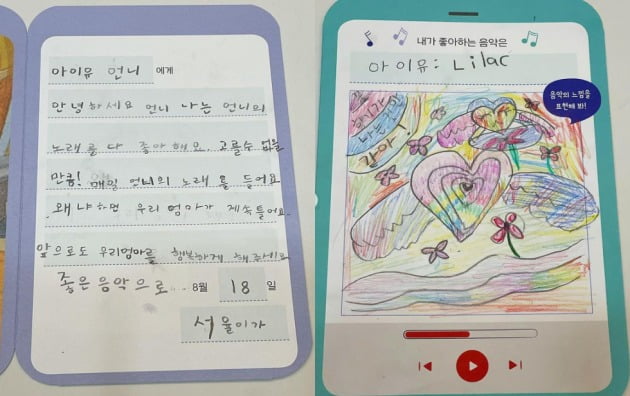 아이유 언니 에게
안녕하세요 언니 나는 언니의
노래를 다 좋아해요 고를수 없을
만큼! 매일 언니의 노래를 들어요
왜냐하면 우리 엄마가 계속틀어요.
앞으로도 우리엄마를 행복하게 해주세요
좋은 음악으로.. 8월 18 일
서울이가
내가 좋아하는 음악은
아이유: Lilac
음악의 느낌을
표현해 봐!